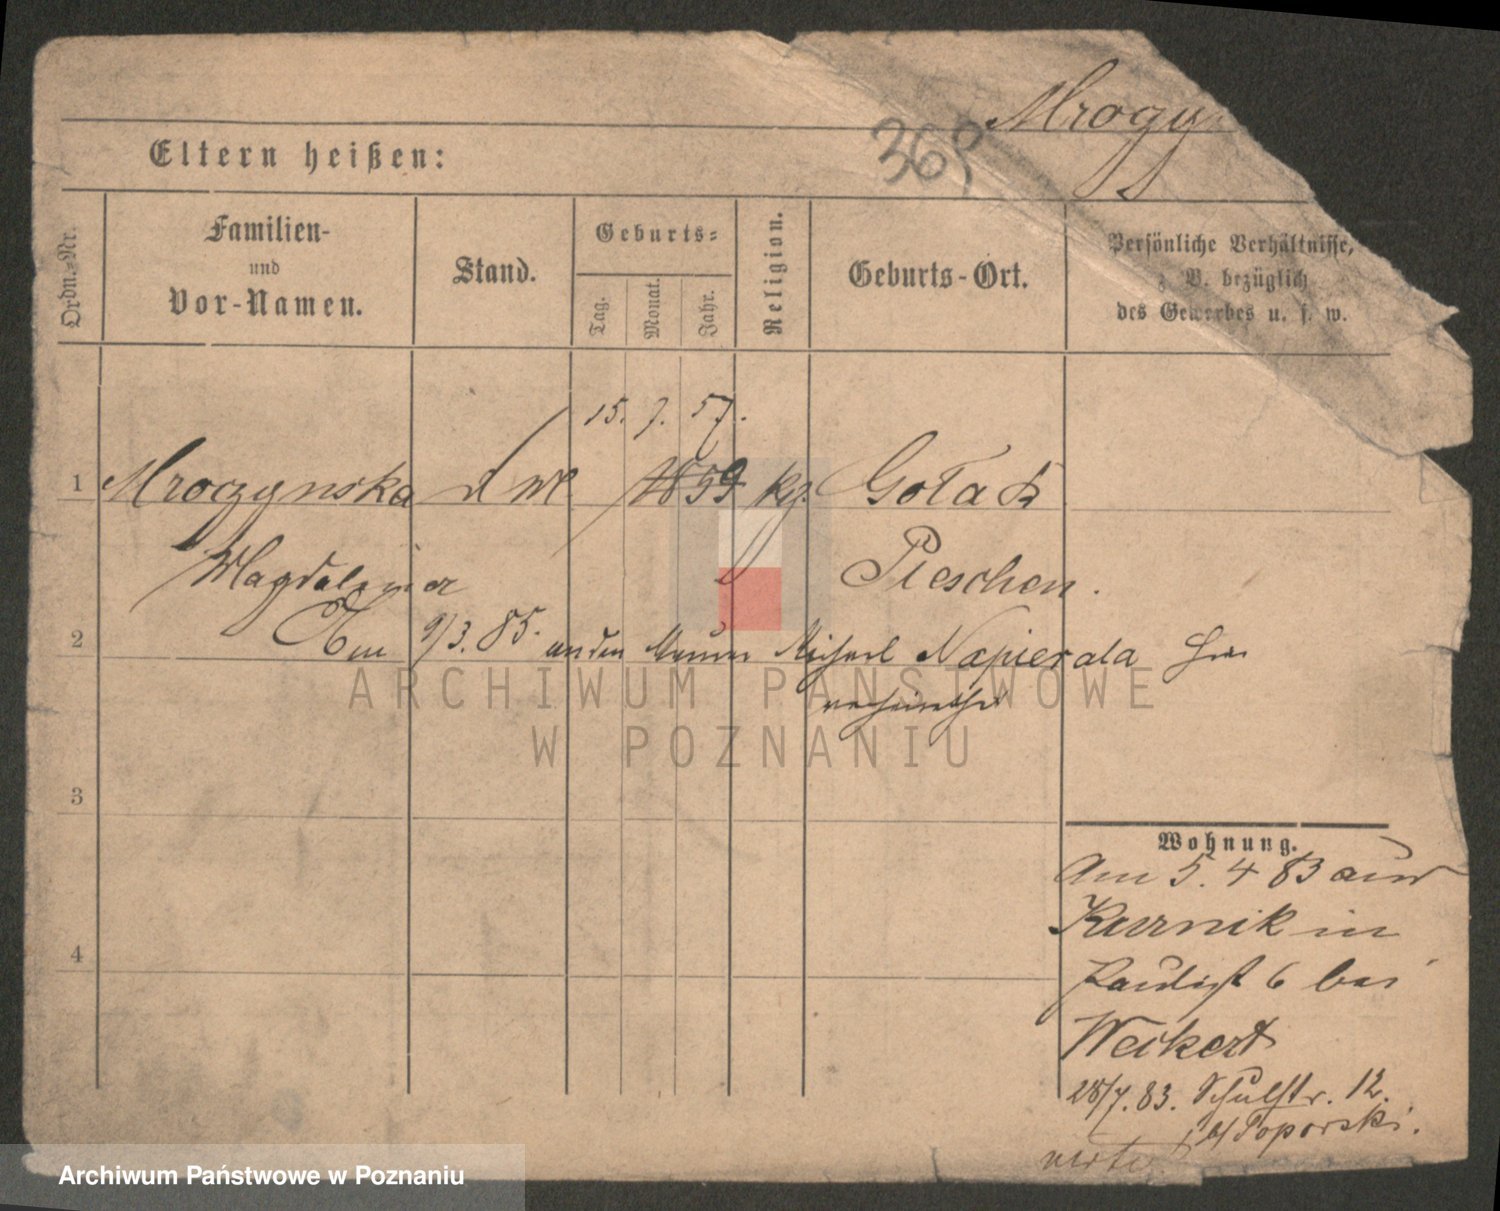 Mroczy
369
Eltern heißen:
Ordn.-Nr.
Familien-
und
Vor-Namen.
Stand.
Geburts-
Tag.
Monat.
Jahr.
Religion.
Geburts-Ort.
Persönliche Verhältnisse,
z. B. bezüglich
des Gewerbes u. s. w.
15. 7. 57.
1 Mroczynska 1859 kg. Gołac
Magdalena Pleschen.
2 Am 9/3. 85. an den Maurer Michael Napierala hier
verheirathet
3
4
Wohnung.
Am 5. 4 83 aus
Kurnik in
6 bei
Weikert
28/7. 83. Schulstr. 12.
b/ Toporski.
verte
ARCHIWUM PAŃSTWOWE
W POZNANIU
Archiwum Państwowe w Poznaniu